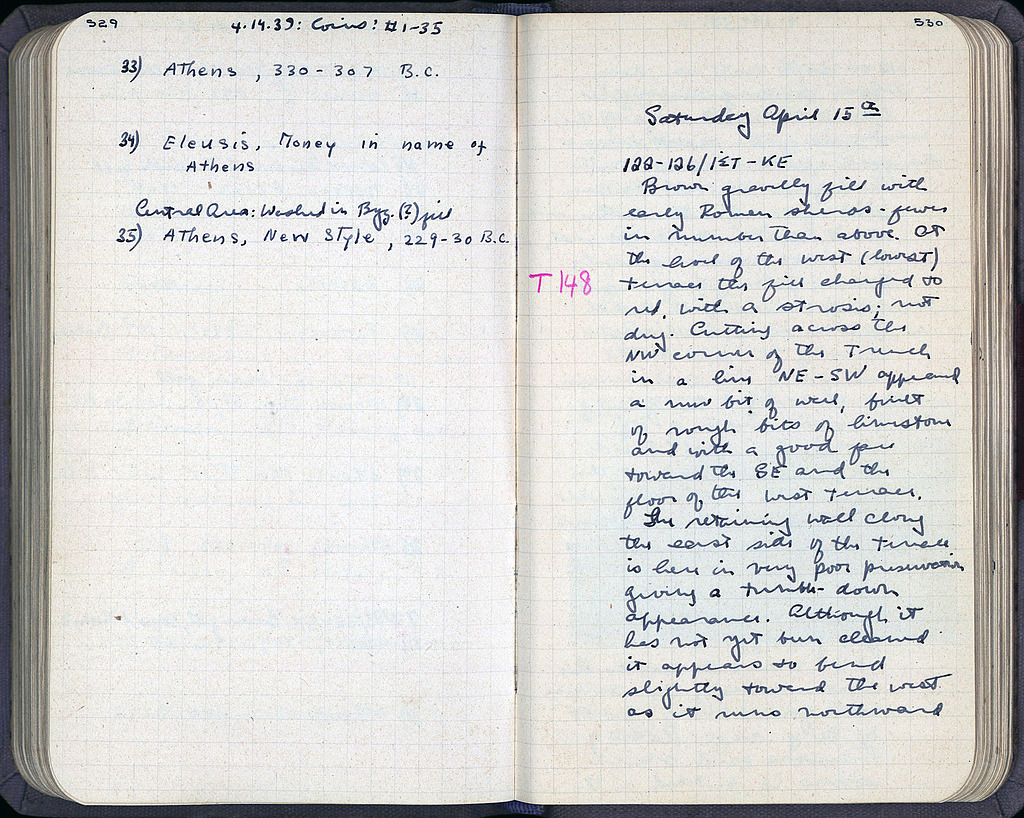 529
4.14.39: Coins: #1-35
33) Athens, 330-307 B.C.
34) Eleusis, Money in name of
Athens
Central Area: Washed in Byz. (?) fill
35) Athens, New Style, 229-30 B.C.
530
Saturday April 15th
122-126/ΙΣΤ-ΚΕ
Brown gravelly fill with
early Roman sherds - fewer
in number than above. At
the level of the west (lowest)
terrace the fill changed to
T 148
red, with a strosis; not
dug. Cutting across the
NW corner of the Trench
in a line NE-SW appeared
a new bit of wall, built
of rough bits of limestone
and with a good face
toward the SE and the
floor of the west terrace.
The retaining wall along
the east side of the terrace
is here in very poor preservation
giving a tumble-down
appearance. Although it
has not yet been cleaned
it appears to bend
slightly toward the west
as it runs northward